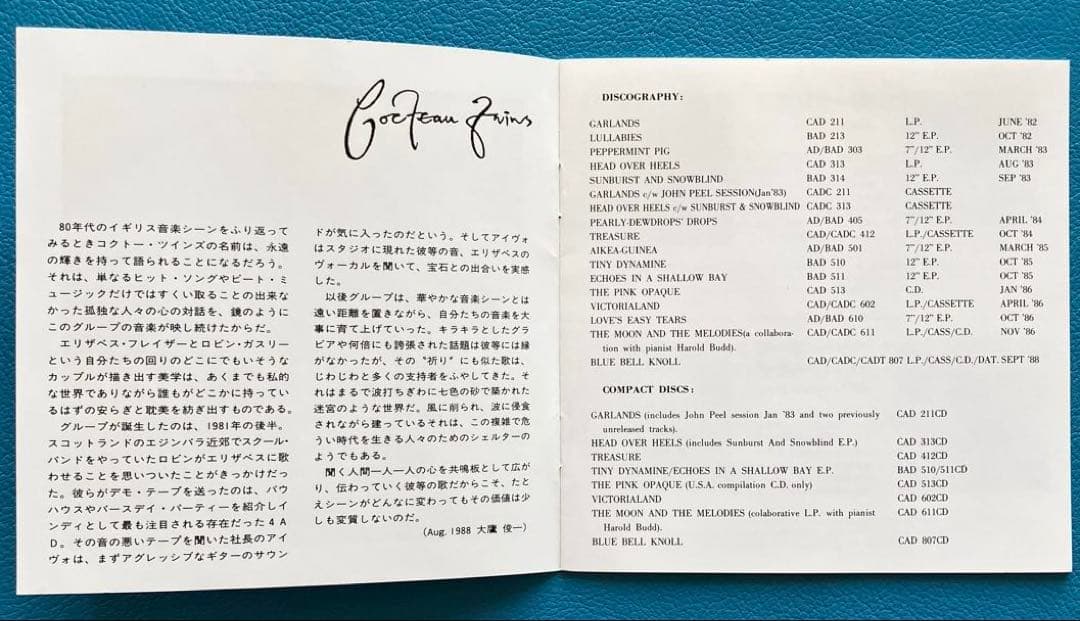 Cocteau Twins
80年代のイギリス音楽シーンをふり返って
みるときコクトー・ツインズの名前は、永遠
の輝きを持って語られることになるだろう。
それは、単なるヒット・ソングやビート・ミ
ュージックだけではすくい取ることの出来な
かった孤独な人々の心の対話を、鏡のように
このグループの音楽が映し続けたからだ。
エリザベス・フレイザーとロビン・ガスリー
という自分たちの回りのどこにでもいそうな
カップルが描き出す美学は、あくまでも私的
な世界でありながら誰もがどこかに持ってい
るはずの安らぎと耽美を紡ぎ出すものである。
グループが誕生したのは、1981年の後半。
スコットランドのエジンバラ近郊でスクール・
バンドをやっていたロビンがエリザベスに歌
わせることを思いついたことがきっかけだっ
た。彼らがデモ・テープを送ったのは、バウ
ハウスやバースデイ・パーティーを紹介しイ
ンディとして最も注目される存在だった4A
D。その音の悪いテープを聞いた社長のアイ
ヴォは、まずアグレッシブなギターのサウン
ドが気に入ったのだという。そしてアイヴォ
はスタジオに現れた彼等の音、エリザベスの
ヴォーカルを聞いて、宝石との出合いを実感
した。
以後グループは、華やかな音楽シーンとは
遠い距離を置きながら、自分たちの音楽を大
事に育て上げていった。キラキラとしたグラ
ビアや何倍にも誇張された話題は彼等には縁
がなかったが、その〝祈り〟にも似た歌は、
じわじわと多くの支持者をふやしてきた。そ
れはまるで波打ちぎわに七色の砂で築かれた
迷宮のような世界だ。風に削られ、波に侵食
されながら建っているそれは、この複雑で危
うい時代を生きる人々のためのシェルターの
ようでもある。
聞く人間一人一人の心を共鳴板として広が
り、伝わっていく彼等の歌だからこそ、たと
えシーンがどんなに変わってもその価値は少
しも変質しないのだ。
(Aug. 1988 大鷹 俊一)
DISCOGRAPHY:
GARLANDS CAD 211 L.P. JUNE '82
LULLABIES BAD 213 12" E.P. OCT '82
PEPPERMINT PIG AD/BAD 303 7"/12" E.P. MARCH '83
HEAD OVER HEELS CAD 313 L.P. AUG '83
SUNBURST AND SNOWBLIND BAD 314 12" E.P. SEP '83
GARLANDS c/w JOHN PEEL SESSION(Jan'83) CADC 211 CASSETTE
HEAD OVER HEELS c/w SUNBURST & SNOWBLIND CADC 313 CASSETTE
PEARLY-DEWDROPS' DROPS AD/BAD 405 7"/12" E.P. APRIL '84
TREASURE CAD/CADC 412 L.P./CASSETTE OCT '84
AIKEA-GUINEA AD/BAD 501 7"/12" E.P. MARCH '85
TINY DYNAMINE BAD 510 12" E.P. OCT '85
ECHOES IN A SHALLOW BAY BAD 511 12" E.P. OCT '85
THE PINK OPAQUE CAD 513 C.D. JAN '86
VICTORIALAND CAD/CADC 602 L.P./CASSETTE APRIL '86
LOVE'S EASY TEARS AD/BAD 610 7"/12" E.P. OCT '86
THE MOON AND THE MELODIES(a collabora- CAD/CADC 611 L.P./CASS/C.D. NOV '86
tion with pianist Harold Budd).
BLUE BELL KNOLL CAD/CADC/CADT 807 L.P./CASS/C.D./DAT. SEPT '88
COMPACT DISCS:
GARLANDS (includes John Peel session Jan '83 and two previously CAD 211CD
unreleased tracks).
HEAD OVER HEELS (includes Sunburst And Snowblind E.P.) CAD 313CD
TREASURE CAD 412CD
TINY DYNAMINE/ECHOES IN A SHALLOW BAY E.P. BAD 510/511CD
THE PINK OPAQUE (U.S.A. compilation C.D. only) CAD 513CD
VICTORIALAND CAD 602CD
THE MOON AND THE MELODIES (colaborative L.P. with pianist CAD 611CD
Harold Budd).
BLUE BELL KNOLL CAD 807CD